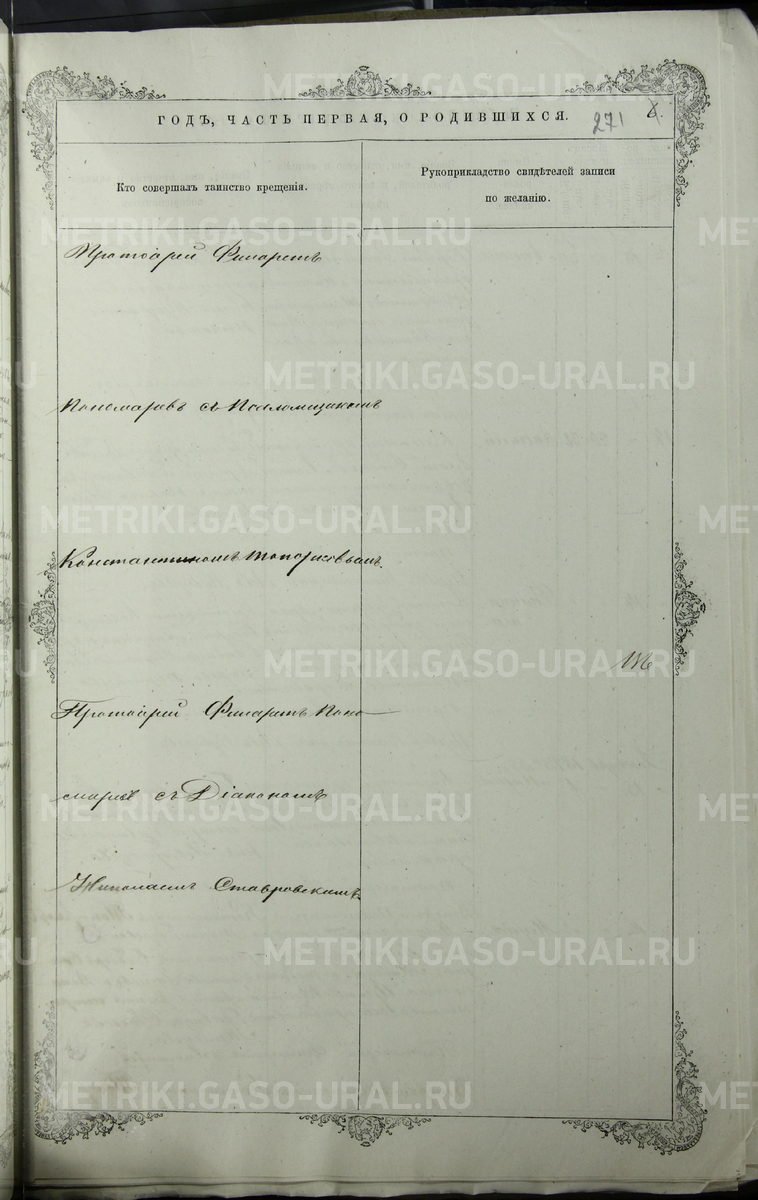 METRIKI.GASO-URAL.RU
ГОДЪ, ЧАСТЬ ПЕРВАЯ, О РОДИВШИХСЯ.
271
8.
Кто совершалъ таинство крещенія.
Рукоприкладство свидѣтелей записи
по желанію.
Протоіерей Филаретъ
Пономаревъ съ Псаломщикомъ
Константиномъ Топорковымъ.
Протоіерей Филаретъ Поно-
маревъ съ Діакономъ
Николаемъ Ставровскимъ.